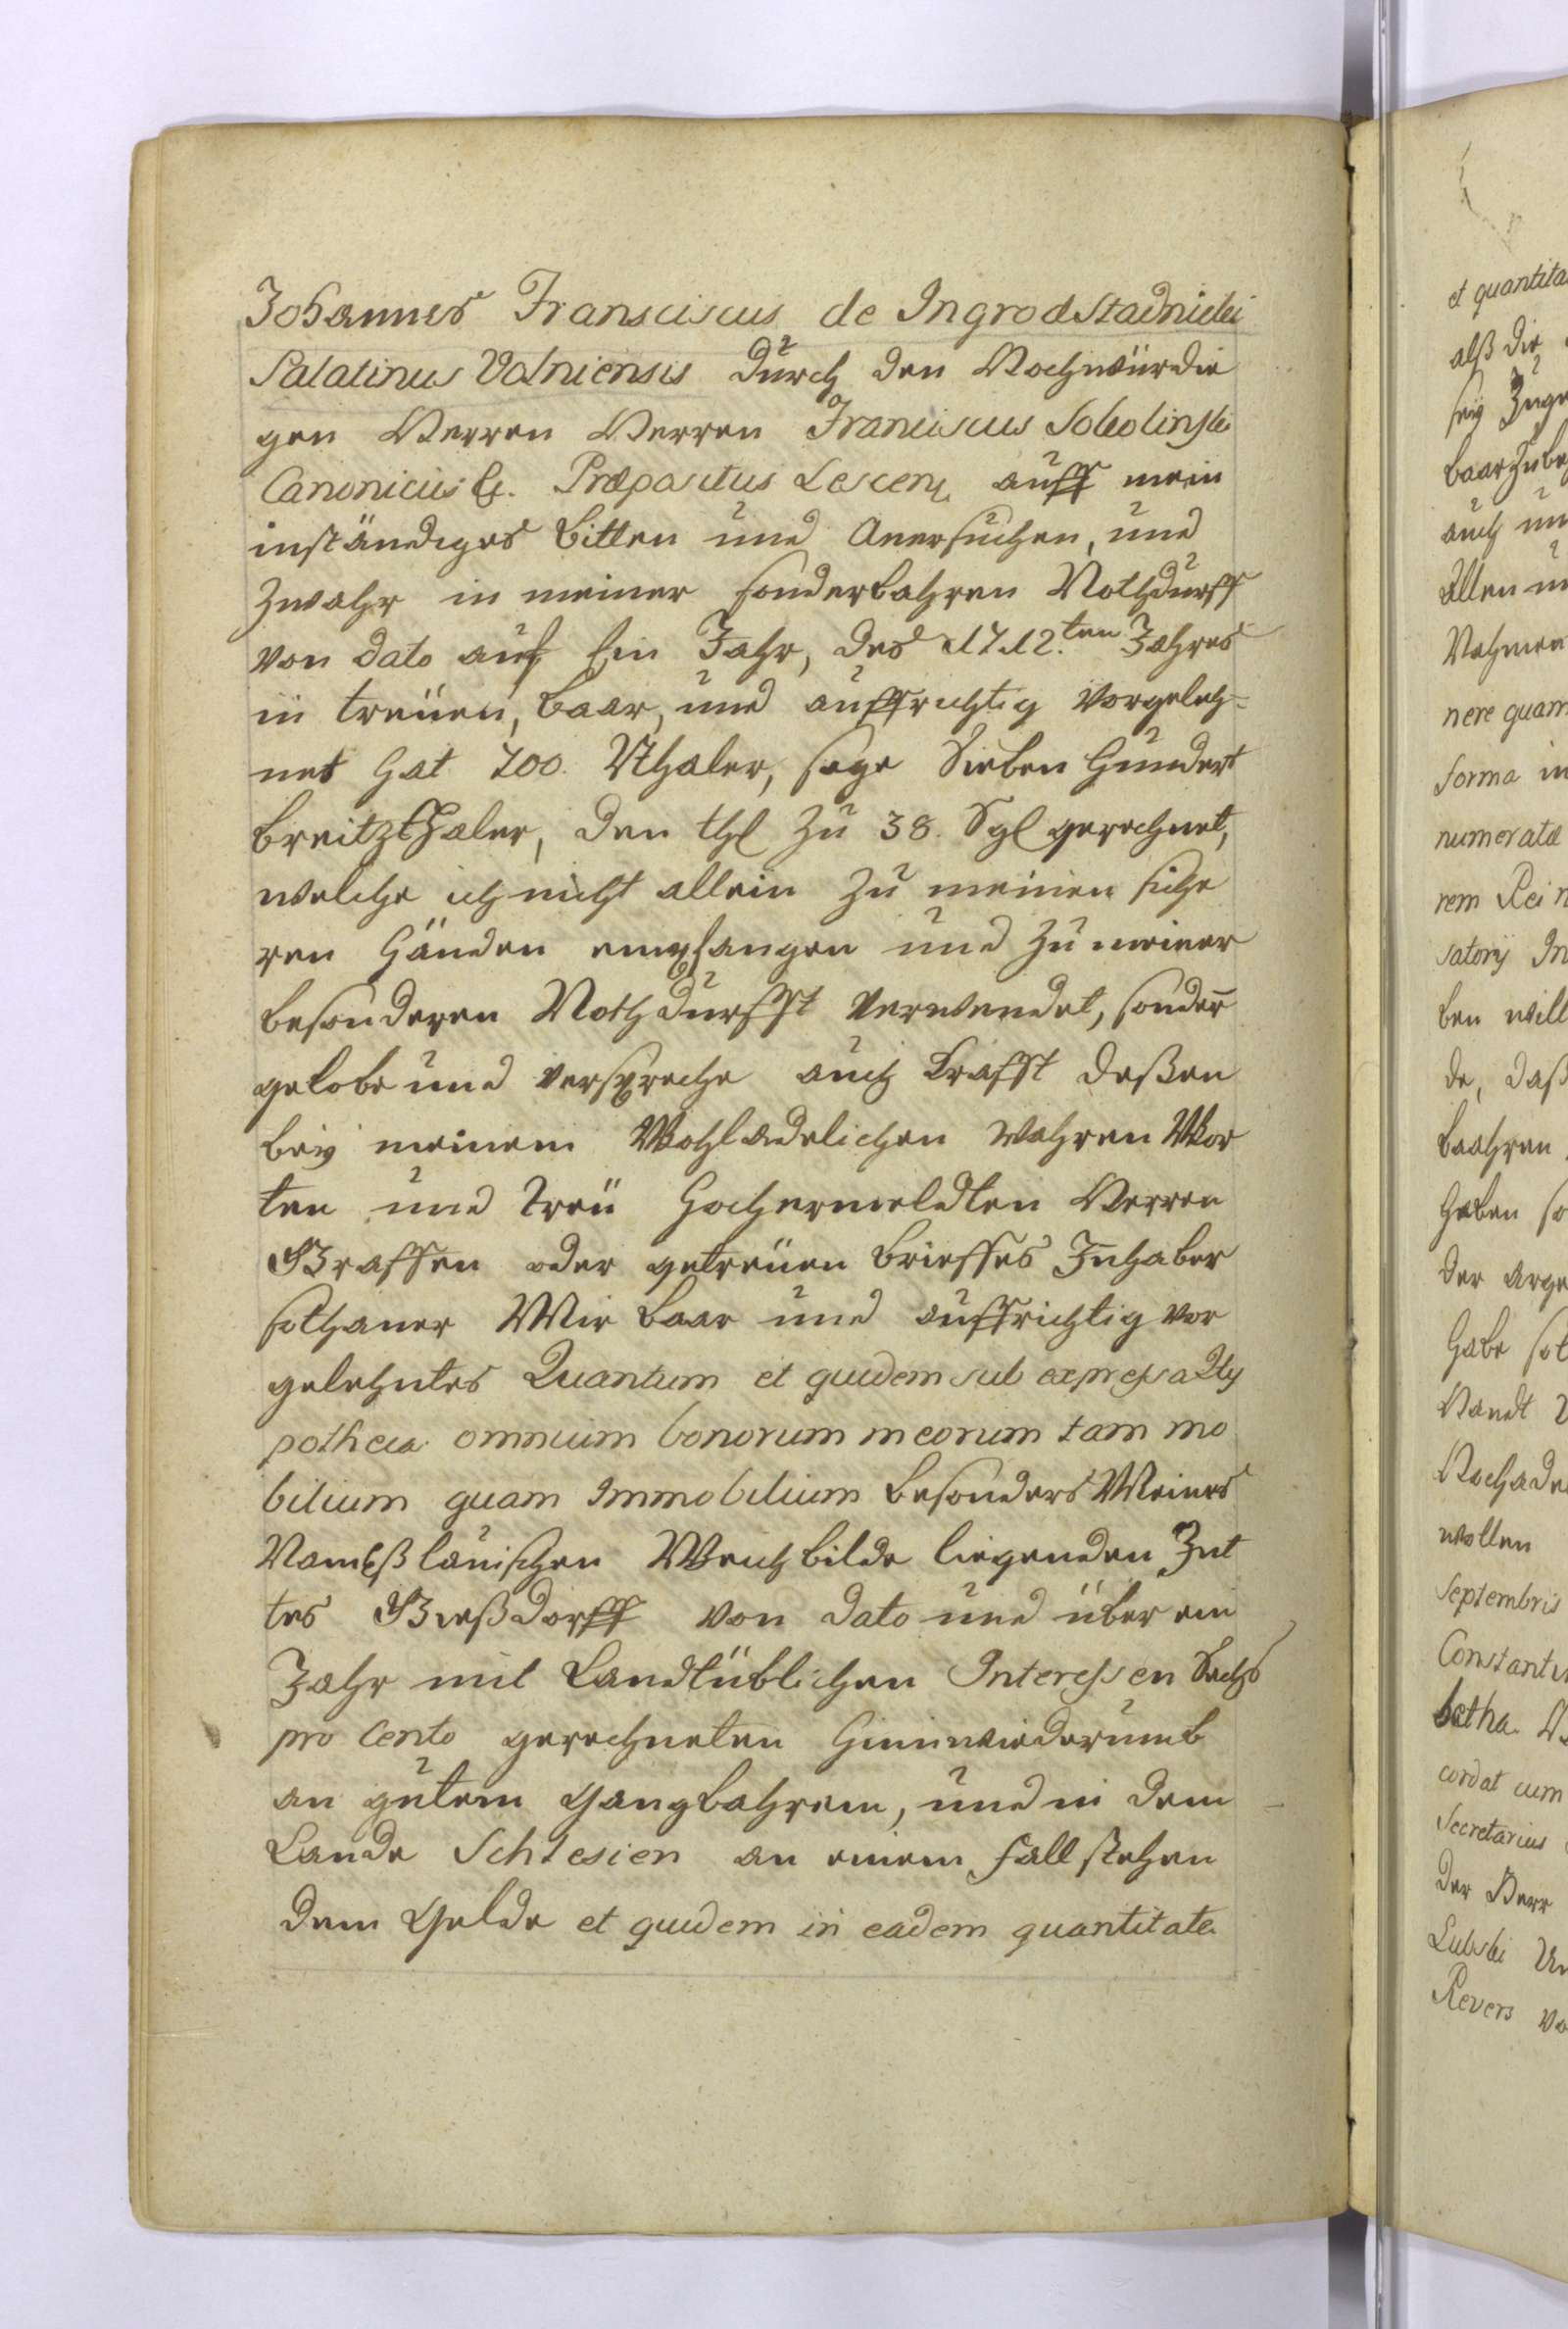 Johannes Fransciscus de Ingrod Stadnicki
Palatinus Volniensis durch den Hochwürdie
gen Herren Herren Franciscus Sokolinski
Canonicus &. Præpositus auff mein
inständiges bitten und Anersuchen, und
zwahr in meiner sonderbahren Nothdurff
von dato auf Ein Jahr, des 1712.ten Jahres
in treüen, baar, und auffrichtig vorgeleh=
net hat 700. Rthaler, sage Sieben Hundert
Creitzthaler, den thl zu 38. Sgl gerechnet,
welche ich nicht allein zu meinen siche
ren Händen empfangen und zu meiner
besonderen Nothdurfft verwendet, sonder̄
gelobe und verspreche auch Krafft deßen
beÿ meinem Wohladelichen wahren Wor
ten und treü Hochermeldten Herren
Graffen oder getreüen brieffes Inhaber
sothaner Mir baar und auffrichtig vor
gelehntes Quantum et quidem sub expressa Hy
potheca omnium bonorum meorum tam mo
bilium quam Immobilium besonders Meines
Namßlauischen Weichbilde liegenden Gut
tes Gießdorff von dato und über ein
Jahr mit Landtüblichen Interessen Sechs
pro Cento gerechneten hinwiederumb
an gutem gangbahrem, und in dem
Lande Schlesien an einem fall stehen
dem Gelde et quidem in eadem quantitate
et quantita
alß die
seÿ
baar
auch
Allen
Nahmen
nere quam
forma in
numeratæ
rem Rei
satorÿ In
ben will
de, daß
baahren
haben so
der arge
habe
Handt
Hochade
wollen
Septembris
Constanti
betha
cordat cum
Secretarius
der Herr
Lubski
Revers vo